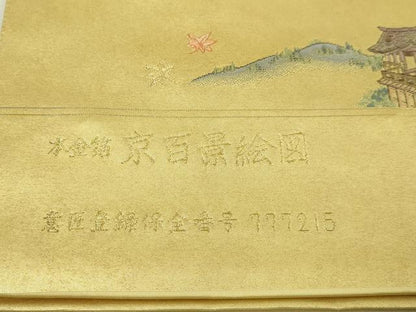 本金箔 京百景絵図
意匠登録保全番号 777215